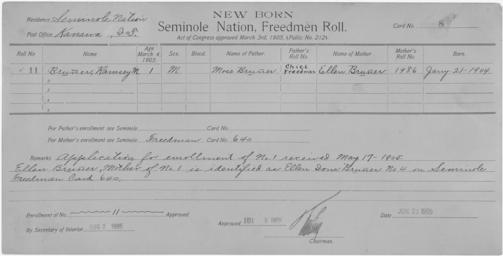 NEW BORN
Residence Seminole Nation
Seminole Nation, Freedmen Roll.
Card No. 8
Post Office Kanawa, I.T.
Act of Congress approved March 3rd, 1905, (Public No. 212).
Roll No Name Age March 4 1905. Sex. Blood. Name of Father. Father's Roll No. Name of Mother. Mother's Roll No. Born.
11 Bruner, Ramsey M. 1 M Mose Bruner Chief Freedman Ellen Bruner 1986 Jany-21-1904.
For Father's enrollment see Seminole Card No.
For Mother's enrollment see Seminole Freedman Card No. 640
Remarks Application for enrollment of No. 1 received May 17-1905
Ellen Bruner, Mother of No. 1 is identified as Ellen Done Bruner No 4 on Seminole
Freedman Card 640
Enrollment of No. 11 Approved
By Secretary of Interior 1905
Approved 1905
Chairman.
Date JUN 21 1905